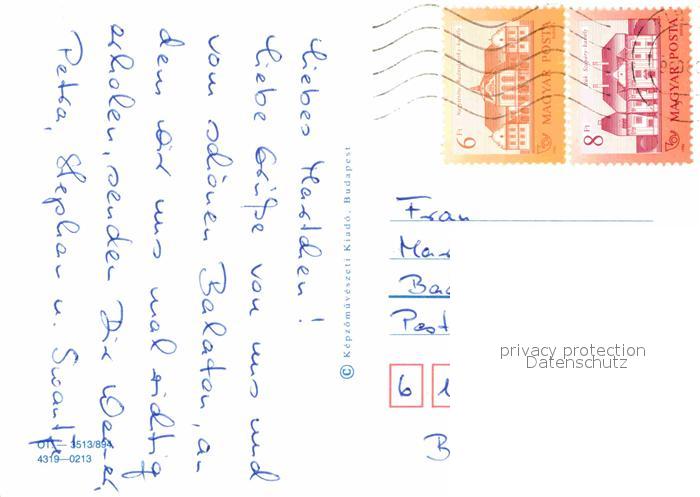 Liebes Martchen!
Liebe Grüße von uns und
vom schönen Balaton, an
dem wir uns mal richtig
erholen, senden Dir
Petra, Stephan u. Swantje
© Képzőművészeti Kiadó, Budapest
3513/894
4319—0213
6 Ft
MAGYAR POSTA
8 Ft
MAGYAR POSTA
Frau
Mar
Bad
Post
6 1
B
privacy protection
Datenschutz